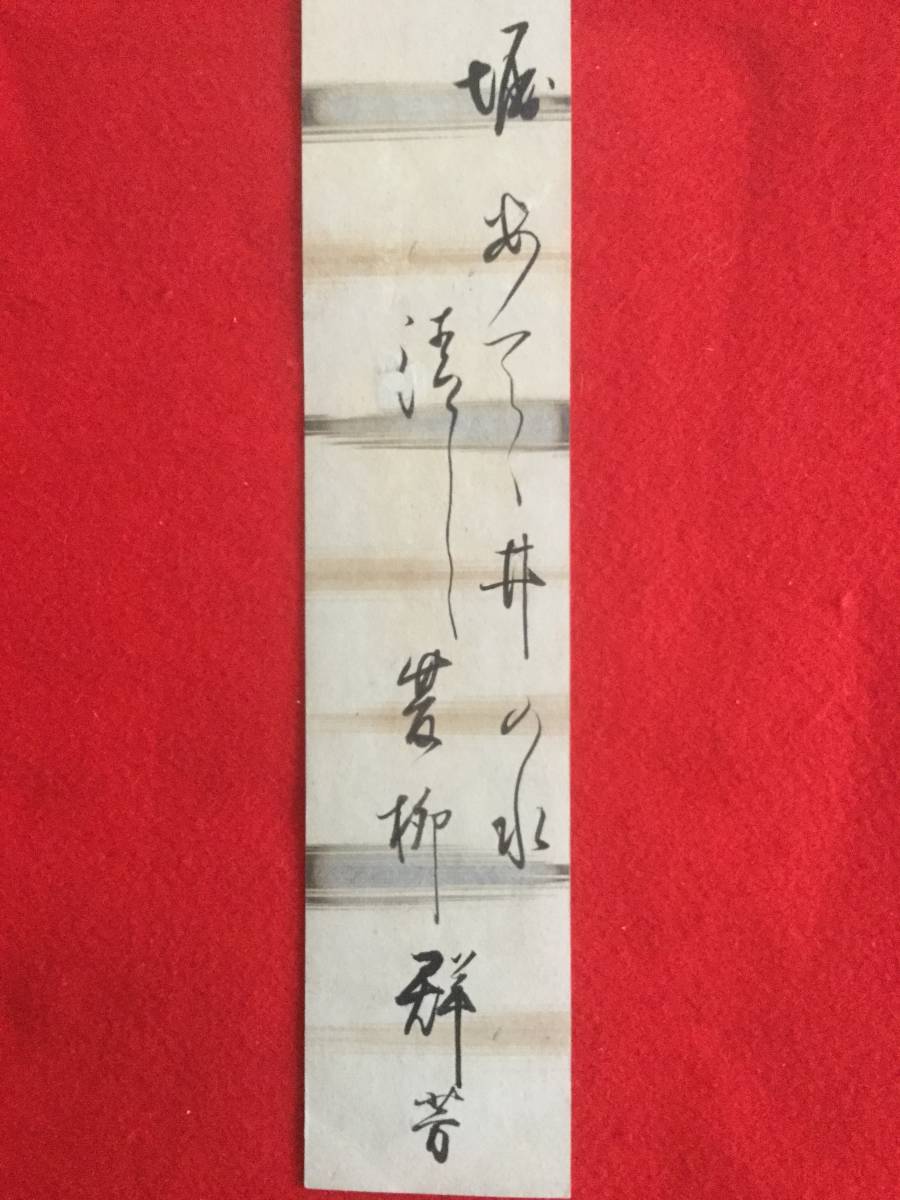 堀あてゝ井の水
清し柳 群芳